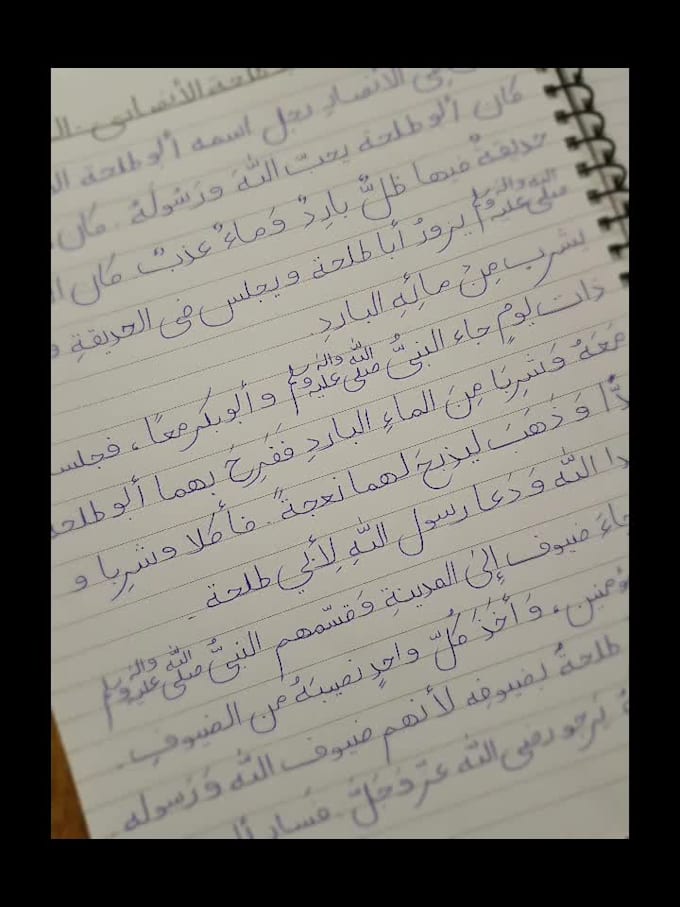 طلحة الأنصاري
الأنصار رجل اسمه أبو طلحة
كان أبو طلحة يحبّ اللهَ ورَسُولَهُ. كان
حديقةٌ فيها ظلٌّ بارِدٌ وَماءٌ عذبٌ كان
صلى الله عليه وآله وسلم يزورُ أبا طلحة ويجلس في الحديقةِ و
يشرب مِنْ مائِهِ الباردِ.
ذات يومٍ جاء النبيُّ صلى الله عليه وآله وسلم وأبوبكر معًا، فجلس
مَعَهُ وَشَرِبَا مِنَ الماءِ الباردِ فَفَرِحَ بهما أبو طلحة
وَذَهَبَ ليذبحَ لهما نعجةً. فأكلا وشرِبا و
الله وَدَعا رسول اللهِ لِأبي طلحة.
جاءَ ضيوف إلىٰ المدينةِ وَقسّمهم النبيُّ صلى الله عليه وآله وسلم
وَأَخَذَ كُلّ واحدٍ نصيبَهُ من الضيوفِ.
طلحةُ بضيوفه لأنهم ضيوف الله وَرَسوله.
يَرجو رضى الله عزّ وَجَلَّ. فسار